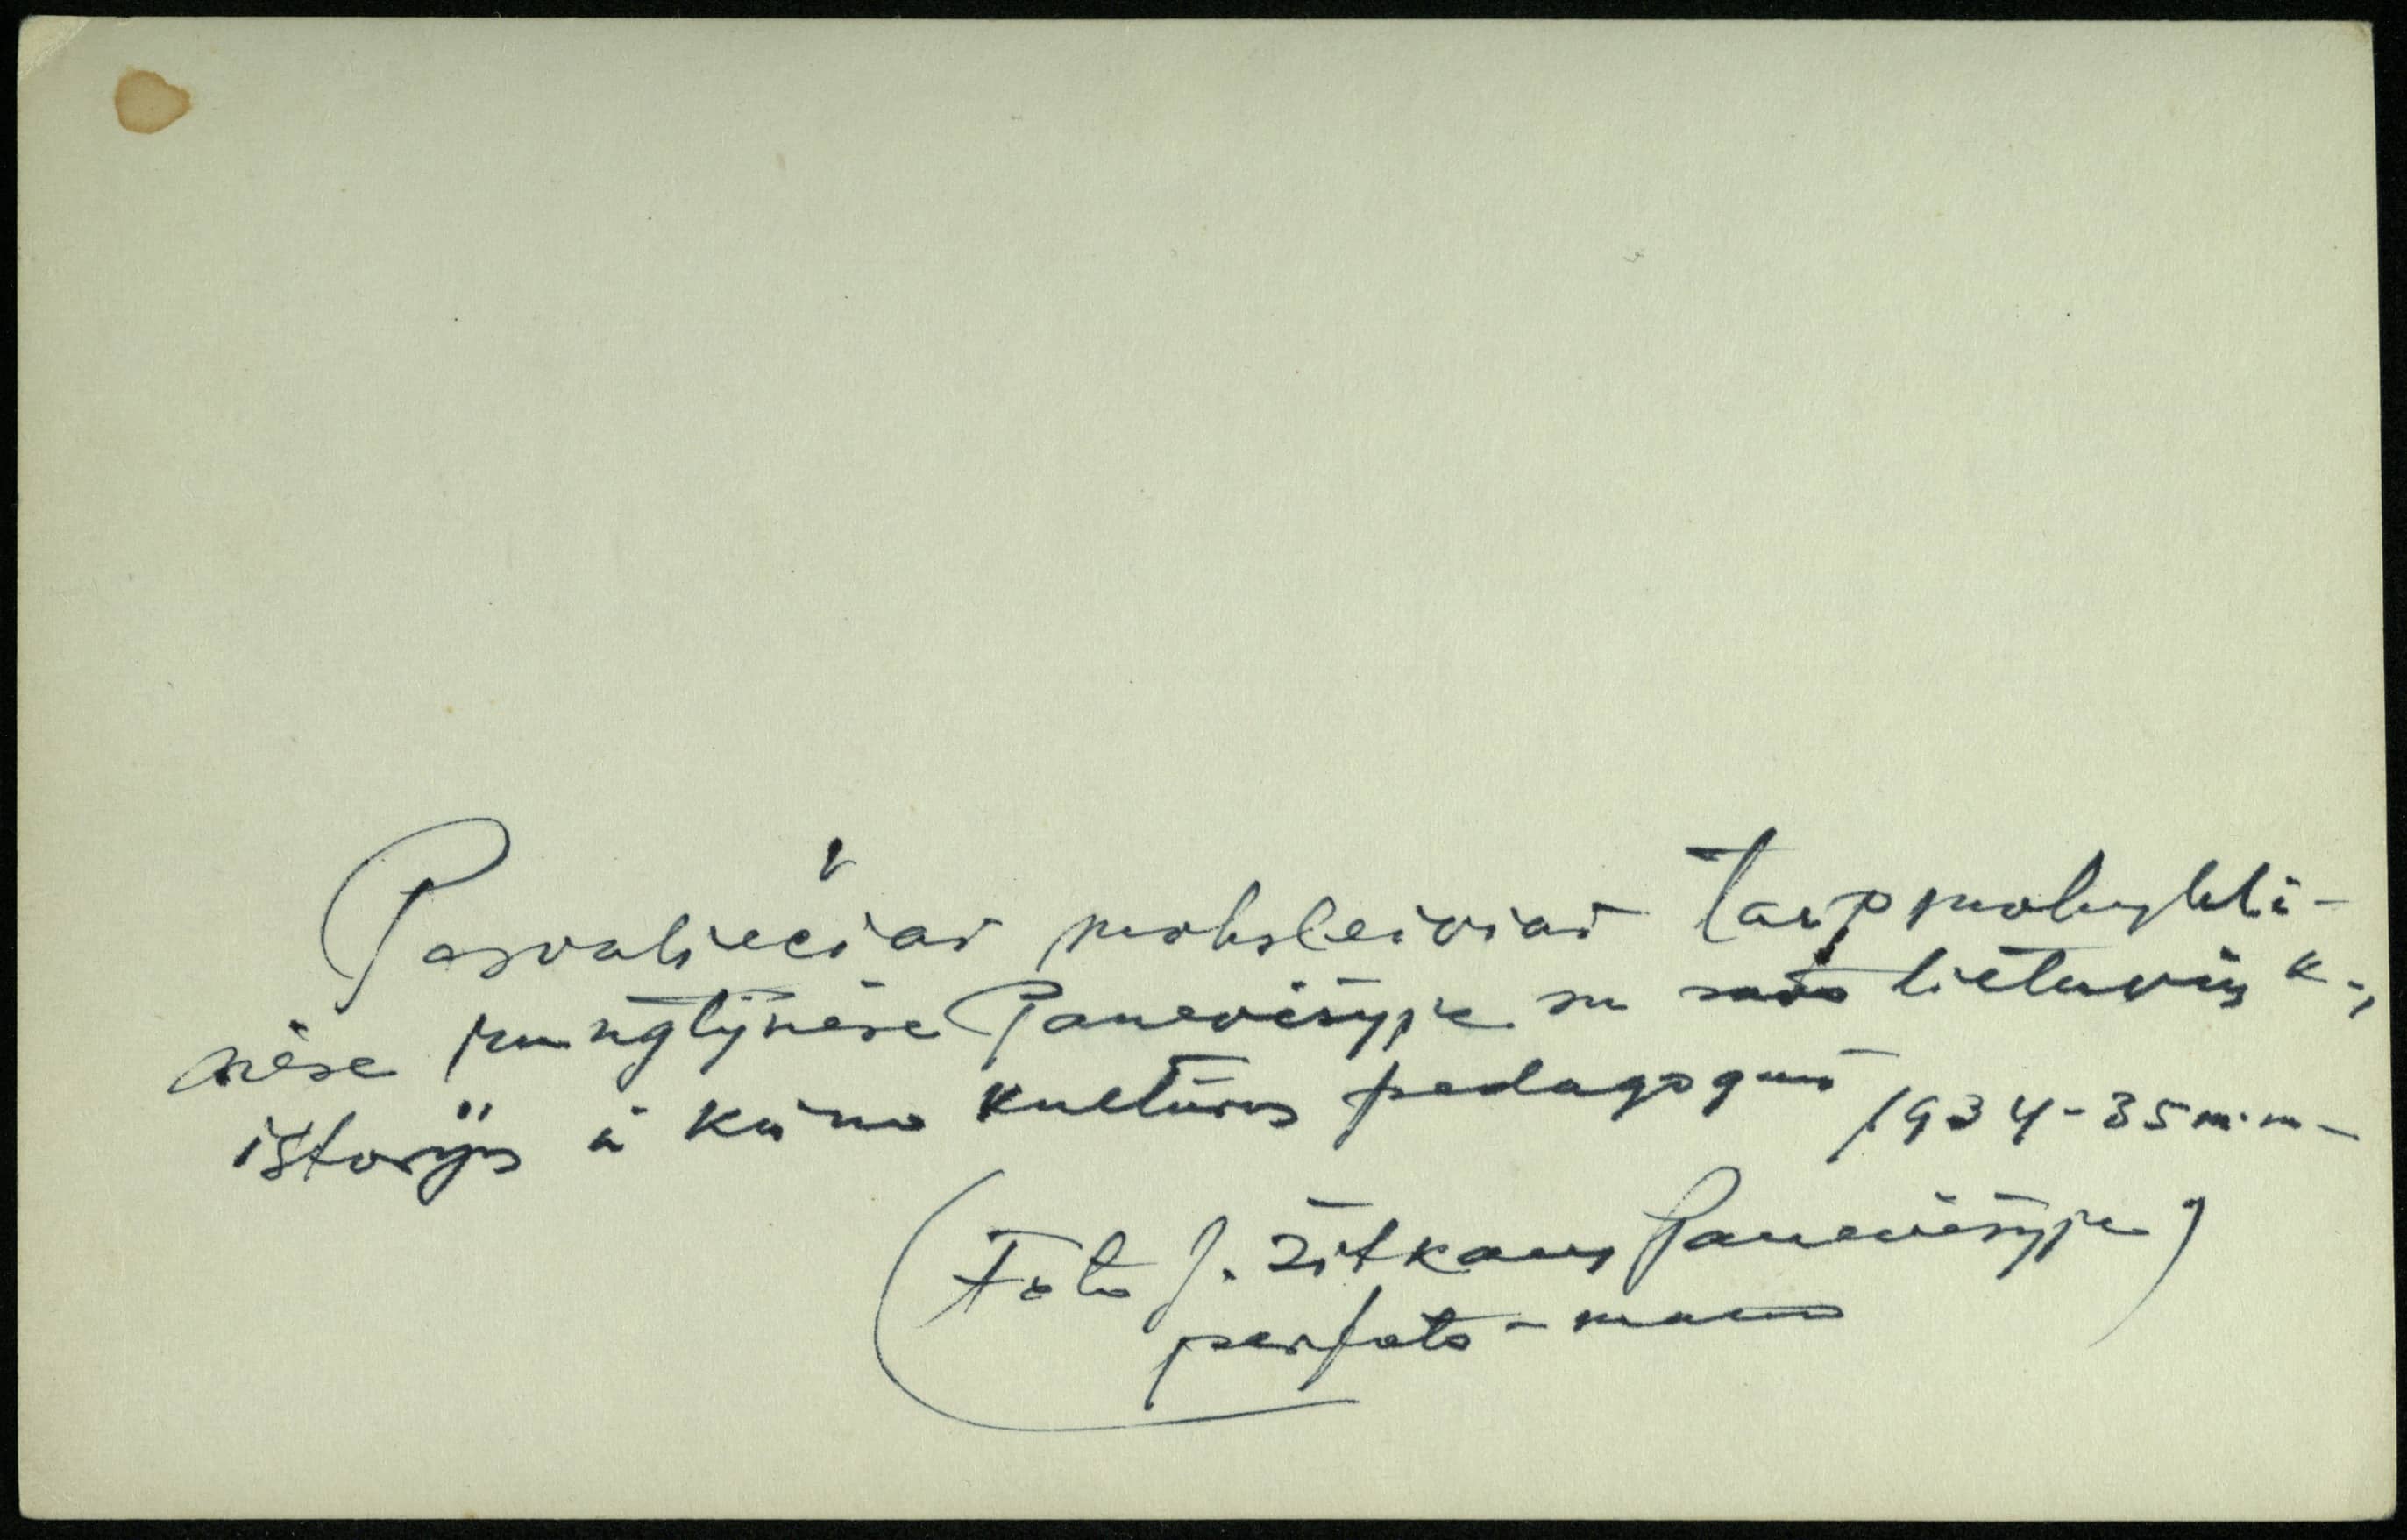 Pasvaliečiai moksleiviai tarpmokykli-
nėse rungtynėse Panevėžyje su savo lietuvių k.,
istorijos ir kūno kultūros pedagogais 1934-35 m.m.
(Foto J. Žitkaus Panevėžyje)
perfoto